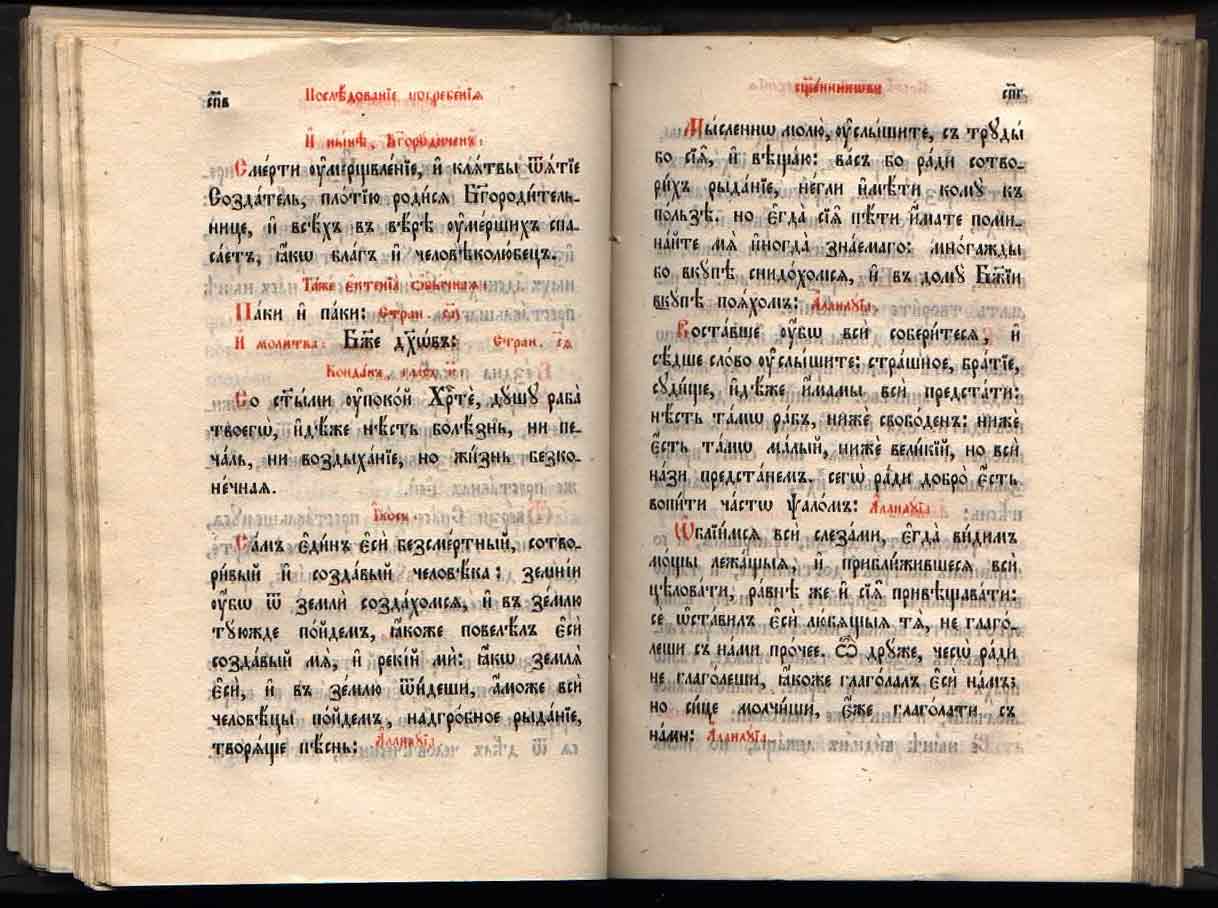 сп҃в
Послѣ́дованїе погребе́нїѧ
И҆ ны́нѣ, Бг҃оро́диченъ:
Сме́рти ᲂу҆мерщвле́нїе, и҆ клѧ́твы ѿѧ́тїе
Созда́тель, пло́тїю роди́сѧ Бг҃ороди́тель-
нице, и҆ всѣ́хъ въ вѣ́рѣ ᲂу҆ме́ршихъ спа-
са́етъ, ꙗ҆́кѡ бла́гъ и҆ человѣколю́бецъ.
Та́же є҆ктенїа̀ ѡ҆бы́чнаѧ:
Па́ки и҆ па́ки: Стран.
И҆ моли́тва: Бж҃е дх҃ѡ́въ: Стран.
Конда́къ, гла́съ и҃:
Со ст҃ы́ми ᲂу҆поко́й Хрⷭ҇тѐ, дꙋ́шꙋ раба̀
твоегѡ̀, и҆дѣ́же нѣ́сть болѣ́знь, ни пе-
ча́ль, ни воздыха́нїе, но жи́знь безко-
не́чнаѧ.
І҆́косъ.
Са́мъ є҆ди́нъ є҆сѝ безсме́ртный, сотво-
ри́вый и҆ созда́вый человѣ́ка: земні́и
ᲂу҆́бѡ ѿ землѝ созда́хомсѧ, и҆ въ зе́млю
тꙋ́южде по́йдемъ, ꙗ҆́коже повелѣ́лъ є҆сѝ
созда́вый мѧ̀, и҆ реки́й мѝ: ꙗ҆́кѡ землѧ̀
є҆сѝ, и҆ въ зе́млю ѿи́деши, а҆́може всѝ
человѣ́цы по́йдемъ, надгро́бное рыда́нїе,
творѧ́ще пѣ́снь: А҆ллилꙋ́їа.
сщ҃е́нникѡвъ
сп҃г
Мы́сленнѡ молю̀, ᲂу҆слы́шите, съ трꙋды̀
бо сїѧ̑, и҆ вѣща́ю: ва́съ бо ра́ди сотво-
ри́хъ рыда́нїе, не́гли и҆мѣ́ти комꙋ̀ къ
по́льзѣ. но є҆гда̀ сїѧ̑ пѣ́ти и҆́мате поми-
на́йте мѧ̀ и҆ногда̀ зна́емаго: мно́гажды
бо вкꙋ́пѣ снидо́хомсѧ, и҆ въ домꙋ̀ Бж҃їи
вкꙋ́пѣ поѧ́хомъ: А҆ллилꙋ́їа.
Воста́вше ᲂу҆́бѡ всѝ собери́тесѧ, и҆
сѣ́дше сло́во ᲂу҆слы́шите: стра́шное, бра́тїе,
сꙋди́ще, и҆дѣ́же и҆́мамы всѝ предста́ти:
нѣ́сть та́мѡ ра́бъ, нижѐ свобо́денъ: нижѐ
є҆́сть та́мѡ ма́лый, нижѐ вели́кїй, но всѝ
на́зи предста́немъ. сегѡ̀ ра́ди добро̀ є҆́сть
вопи́ти ча́стѡ ѱало́мъ: А҆ллилꙋ́їа.
Ѡ҆блїи́мсѧ всѝ слеза́ми, є҆гда̀ ви́димъ
мо́щы лежа́щыѧ, и҆ прибли́жившесѧ всѝ
цѣлова́ти, ра́внѣ же и҆ сїѧ̑ привѣщава́ти:
се ѡ҆ста́вилъ є҆сѝ лю́бѧщыѧ тѧ̀, не глаго́-
леши съ на́ми про́чее. Ѽ дрꙋ́же, чесѡ̀ ра́ди
не глаго́леши, ꙗ҆́коже глаго́лалъ є҆сѝ на́мъ;
но си́це молчи́ши, є҆́же глаго́лати съ
на́ми: А҆ллилꙋ́їа.